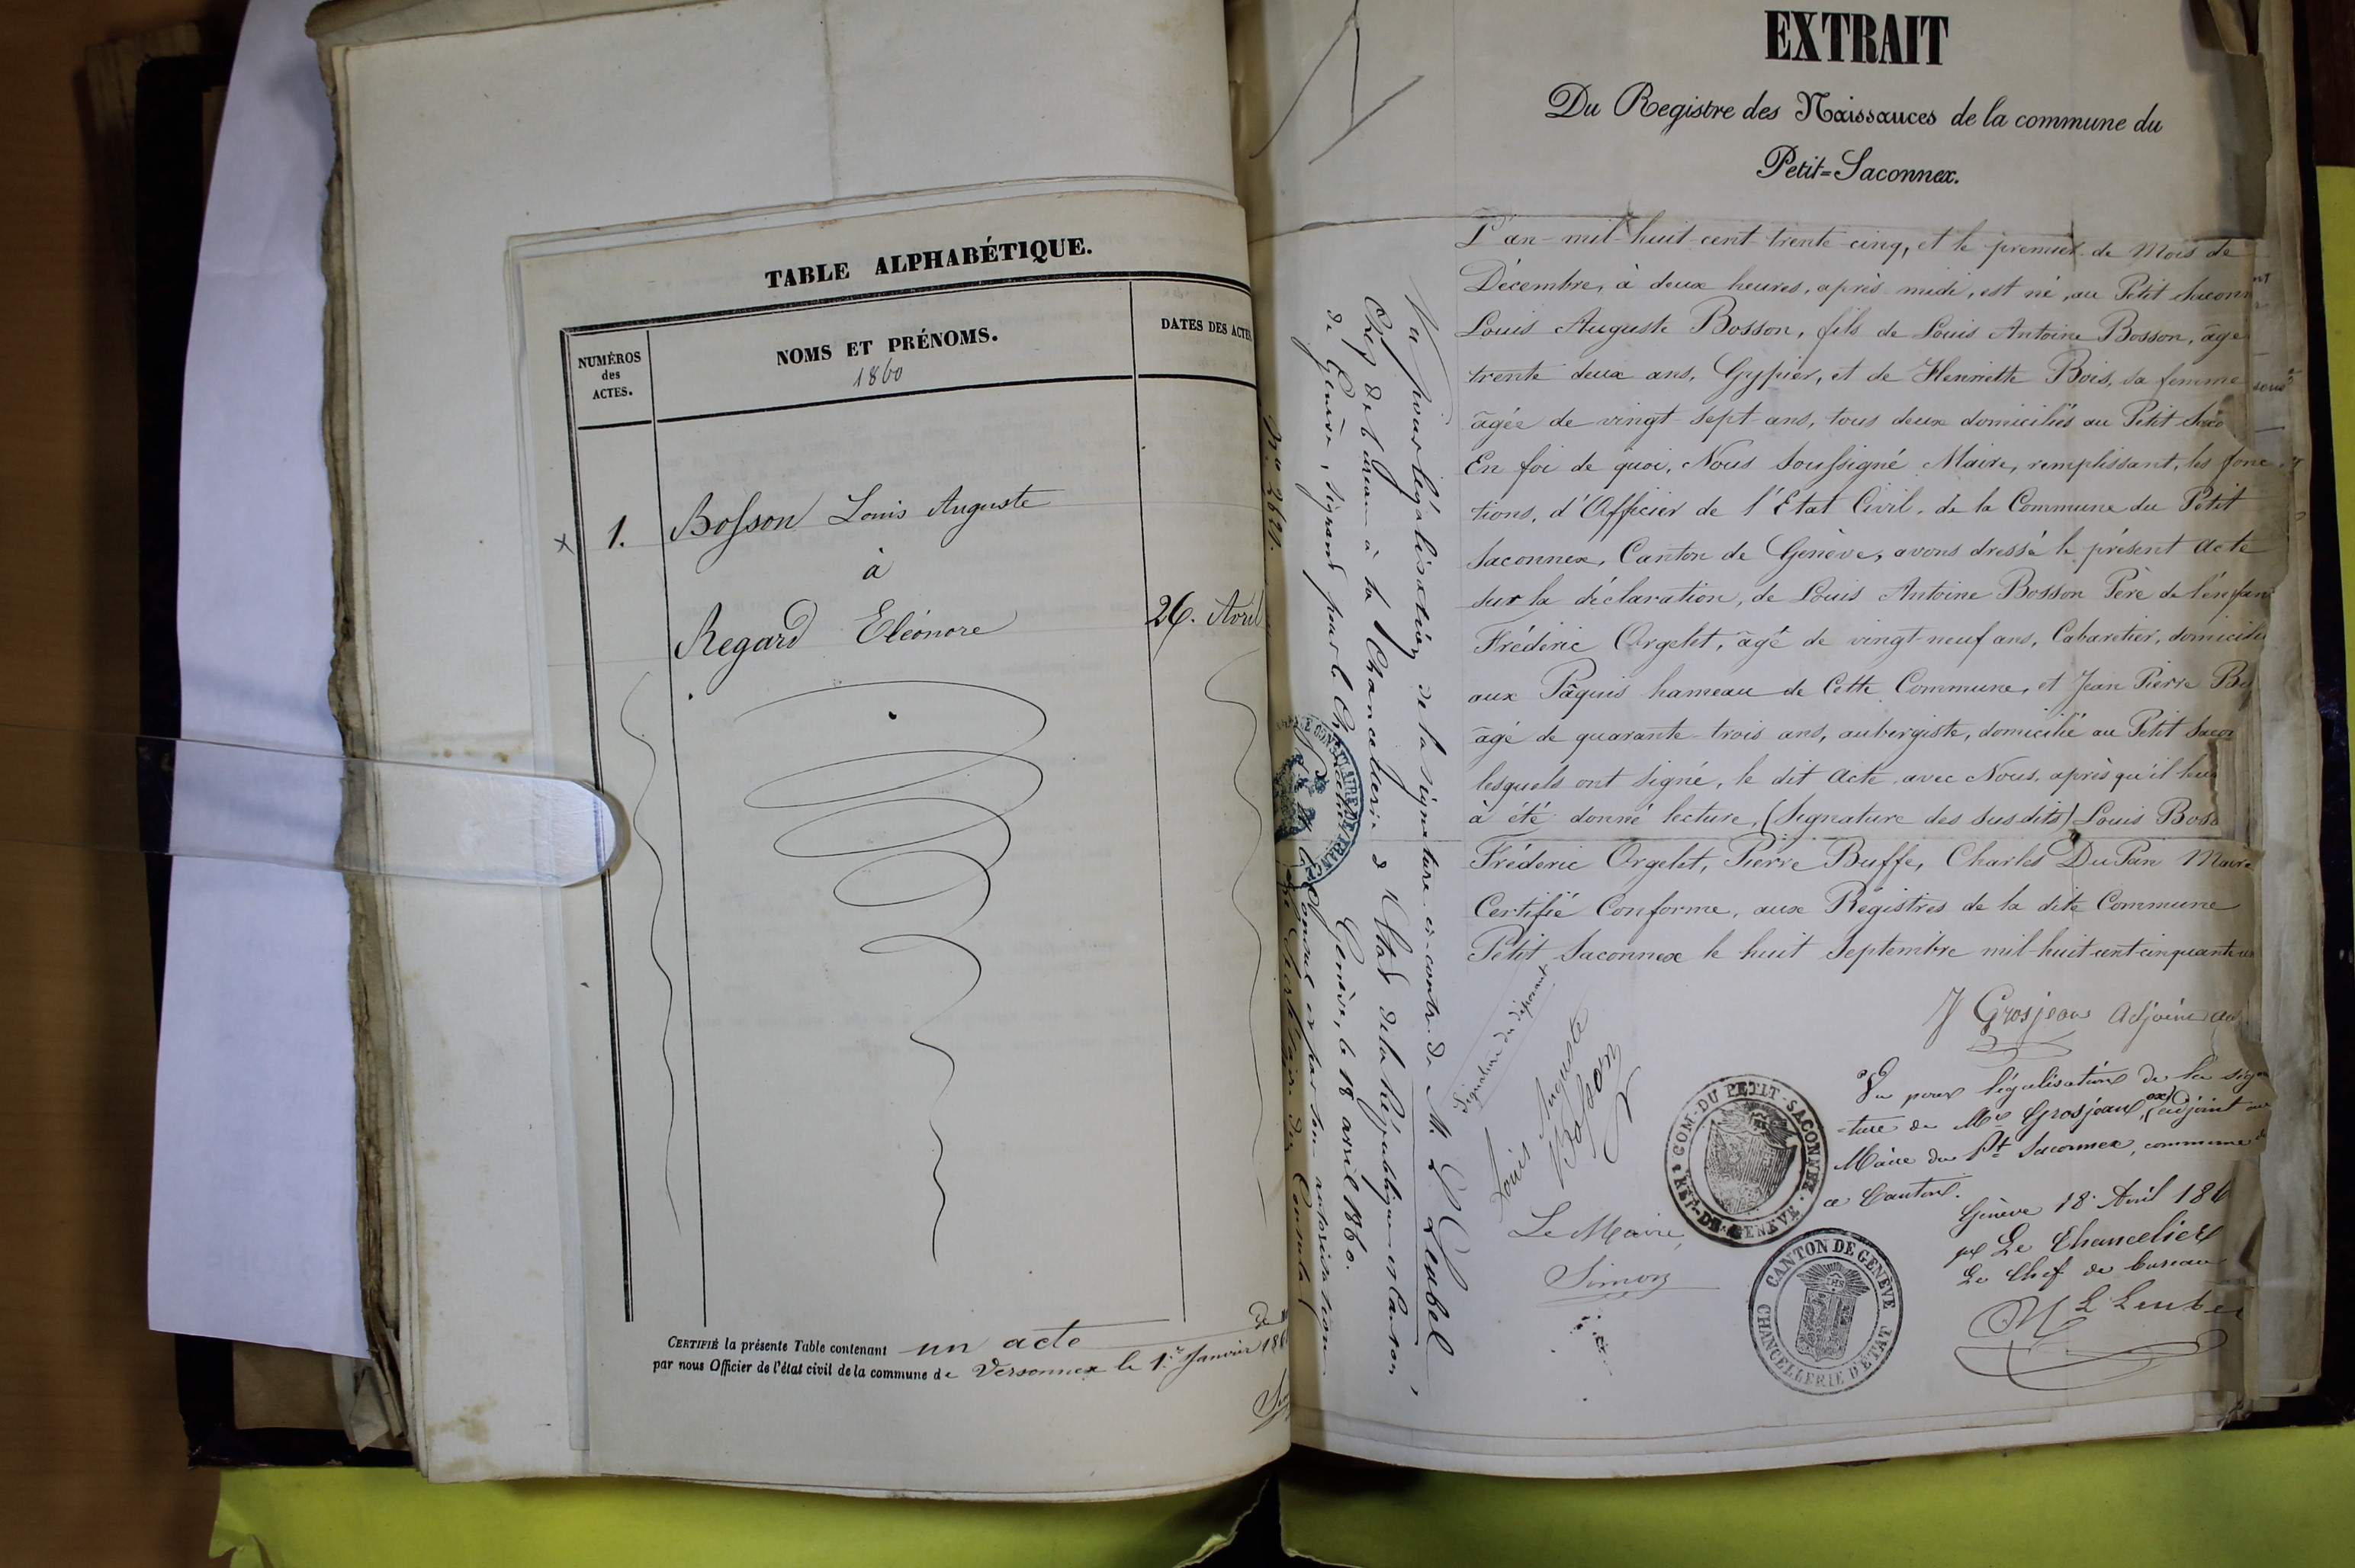 TABLE ALPHABÉTIQUE.
NUMÉROS
des
ACTES.
NOMS ET PRÉNOMS.
1860
DATES DES ACTES
x 1. Bosson Louis Auguste
à
Regard Eléonore 26. Avril
CERTIFIÉ la présente Table contenant un acte
par nous Officier de l'état civil de la commune de Versonnex le 1.er Janvier 186
EXTRAIT
Du Registre des Naissances de la commune du
Petit=Saconnex.
L'an mil huit cent trente cinq, et le premier de Mois de
Décembre, à deux heures, après midi, est né, au Petit Saconn
Louis Auguste Bosson, fils de Louis Antoine Bosson, âgé
trente deux ans, Gypier, et de Henriette Bois, sa femme
âgée de vingt sept ans, tous deux domiciliés au Petit Saco
En foi de quoi, Nous Soussigné Maire, remplissant, les fonc
tions, d'Officier de l'Etat Civil, de la Commune du Petit
Saconnex, Canton de Genève, avons dressé le présent acte
sur la déclaration, de Louis Antoine Bosson Père de l'enfan
Frédéric Orgelet, âgé de vingt-neuf ans, Cabaretier, domicilié
aux Pâquis hameau de Cette Commune, et Jean Pierre Bu
âgé de quarante trois ans, aubergiste, domicilié au Petit Sacon
lesquels ont signé, le dit Acte avec Nous, après qu'il leu
à été donné lecture, (Signature des susdits) Louis Boss
Frédéric Orgelet, Pierre Buffe, Charles DuPan Maire
Certifié Conforme, aux Régistres de la dite Commune
Petit Saconnex le huit Septembre mil-huit-cent-cinquante
J Grosjean Adjoint au
Vu pour légalisation de la signa
-ture de Mr Grosjean, (ex) adjoint au
Maire du Pt Saconnex, commune de
ce Canton.
Genève 18 Avril 186
pr Le Chancelier
Le Chef de bureau
M L Leubel
Signature du déposant
Louis Auguste
Bosson
Le Maire,
Simon
COM. DU PETIT-SACONNEX
REP. DE GENEVE
CANTON DE GENÈVE
CHANCELLERIE D'ETAT
N.o
Vu pour légalisation de la signature ci-contre de M. L Leubel
Chef de bureau à la Chancellerie d'Etat de la République et Canton
de Genève, signant pour le Chancelier
Genève, le 18 avril 1860.
Consul et par son autorisation